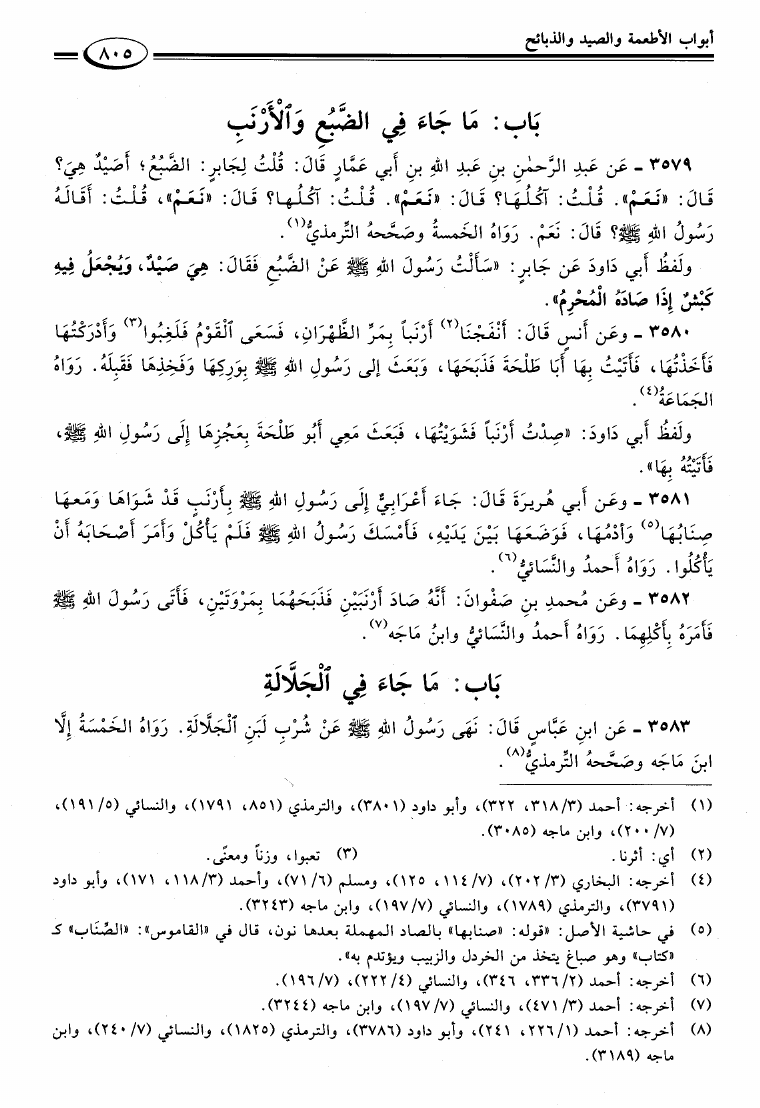 أبواب الأطعمة والصيد والذبائح
٨٠٥
بَاب: مَا جَاءَ فِي الضَّبُعِ وَٱلْأَرْنَبِ
٣٥٧٩ ـ عَن عَبدِ الرَّحمٰنِ بنِ عَبدِ اللهِ بنِ أَبي عَمَّارٍ قَالَ: قُلْتُ لِجَابرٍ: الضَّبُعُ؛ أَصَيْدٌ هِيَ؟
قَالَ: «نَعَمْ». قُلْتُ: آكُلُهَا؟ قَالَ: «نَعَمْ». قُلْتُ: آكُلُها؟ قَالَ: «نَعَمْ»، قُلْتُ: أَقَالَهُ
رَسُولُ اللهِ ﷺ؟ قَالَ: نَعَمْ. رَوَاهُ الخَمسةُ وصَحَّحهُ التِّرمذيُّ(١).
ولَفظُ أَبي دَاودَ عَن جَابرٍ: «سَأَلْتُ رَسُولَ اللهِ ﷺ عَنْ الضَّبُعِ فَقَالَ: هِيَ صَيْدٌ، وَيُجْعَلُ فِيهِ
كَبْشٌ إِذَا صَادَهُ الْمُحْرِمُ».
٣٥٨٠ ـ وعَن أَنسٍ قَالَ: أَنْفَجْنَا(٢) أَرْنَباً بِمَرِّ الظَّهْرَانِ، فَسَعَى ٱلْقَوْمُ فَلَغِبُوا(٣) وَأَدْرَكْتُهَا
فَأَخَذْتُهَا، فَأَتَيْتُ بِهَا أَبَا طَلْحَةَ فَذَبَحَهَا، وَبَعَثَ إلى رَسُولِ اللهِ ﷺ بِوَرِكِهَا وَفَخِذِهَا فَقَبِلَهُ. رَوَاهُ
الجَمَاعَةُ(٤).
ولَفظُ أَبي دَاودَ: «صِدْتُ أَرْنَباً فَشَوَيْتُهَا، فَبَعَثَ مَعِي أَبُو طَلْحَةَ بِعَجُزِهَا إِلَى رَسُولِ اللهِ ﷺ،
فَأَتَيْتُهُ بِهَا».
٣٥٨١ ـ وعَن أَبي هُريرَةَ قَالَ: جَاءَ أَعْرَابِيٌّ إِلَى رَسُولِ اللهِ ﷺ بِأَرْنَبٍ قَدْ شَوَاهَا وَمَعَهَا
صِنَابُهَا(٥) وَأَدْمُهَا، فَوَضَعَهَا بَيْنَ يَدَيْهِ، فَأَمْسَكَ رَسُولُ اللهِ ﷺ فَلَمْ يَأْكُلْ وَأَمَرَ أَصْحَابَهُ أَنْ
يَأْكُلُوا. رَوَاهُ أَحمدُ والنَّسَائيُّ(٦).
٣٥٨٢ ـ وعَن مُحمدِ بنِ صَفْوانَ: أَنَّهُ صَادَ أَرْنَبَيْنِ فَذَبَحَهُمَا بِمَرْوَتَيْنِ، فَأَتَى رَسُولَ اللهِ ﷺ
فَأَمَرَهُ بِأَكْلِهِمَا. رَوَاهُ أَحمدُ والنَّسَائيُّ وابنُ مَاجَه(٧).
بَاب: مَا جَاءَ فِي ٱلْجَلَّالَةِ
٣٥٨٣ ـ عَن ابنِ عَبَّاسٍ قَالَ: نَهَى رَسُولُ اللهِ ﷺ عَنْ شُرْبِ لَبَنِ ٱلْجَلَّالَةِ. رَوَاهُ الخَمْسَةُ إِلَّا
ابنَ مَاجَه وصَحَّحهُ التِّرمذيُّ(٨).
(١) أخرجه: أحمد (٣/٣١٨، ٣٢٢)، وأبو داود (٣٨٠١)، والترمذي (٨٥١، ١٧٩١)، والنسائي (٥/١٩١)،
(٧/٢٠٠)، وابن ماجه (٣٠٨٥).
(٢) أي: أثرنا. (٣) تعبوا، وزناً ومعنًى.
(٤) أخرجه: البخاري (٣/٢٠٢)، (٧/١١٤، ١٢٥)، ومسلم (٦/٧١)، وأحمد (٣/١١٨، ١٧١)، وأبو داود
(٣٧٩١)، والترمذي (١٧٨٩)، والنسائي (٧/١٩٧)، وابن ماجه (٣٢٤٣).
(٥) في حاشية الأصل: «قوله: «صنابها» بالصاد المهملة بعدها نون، قال في «القاموس»: «الصِّنَاب» كـ
«كتاب» وهو صباغ يتخذ من الخردل والزبيب ويؤتدم به».
(٦) أخرجه: أحمد (٢/٣٣٦، ٣٤٦)، والنسائي (٤/٢٢٢)، (٧/١٩٦).
(٧) أخرجه: أحمد (٣/٤٧١)، والنسائي (٧/١٩٧)، وابن ماجه (٣٢٤٤).
(٨) أخرجه: أحمد (١/٢٢٦، ٢٤١)، وأبو داود (٣٧٨٦)، والترمذي (١٨٢٥)، والنسائي (٧/٢٤٠)، وابن
ماجه (٣١٨٩).